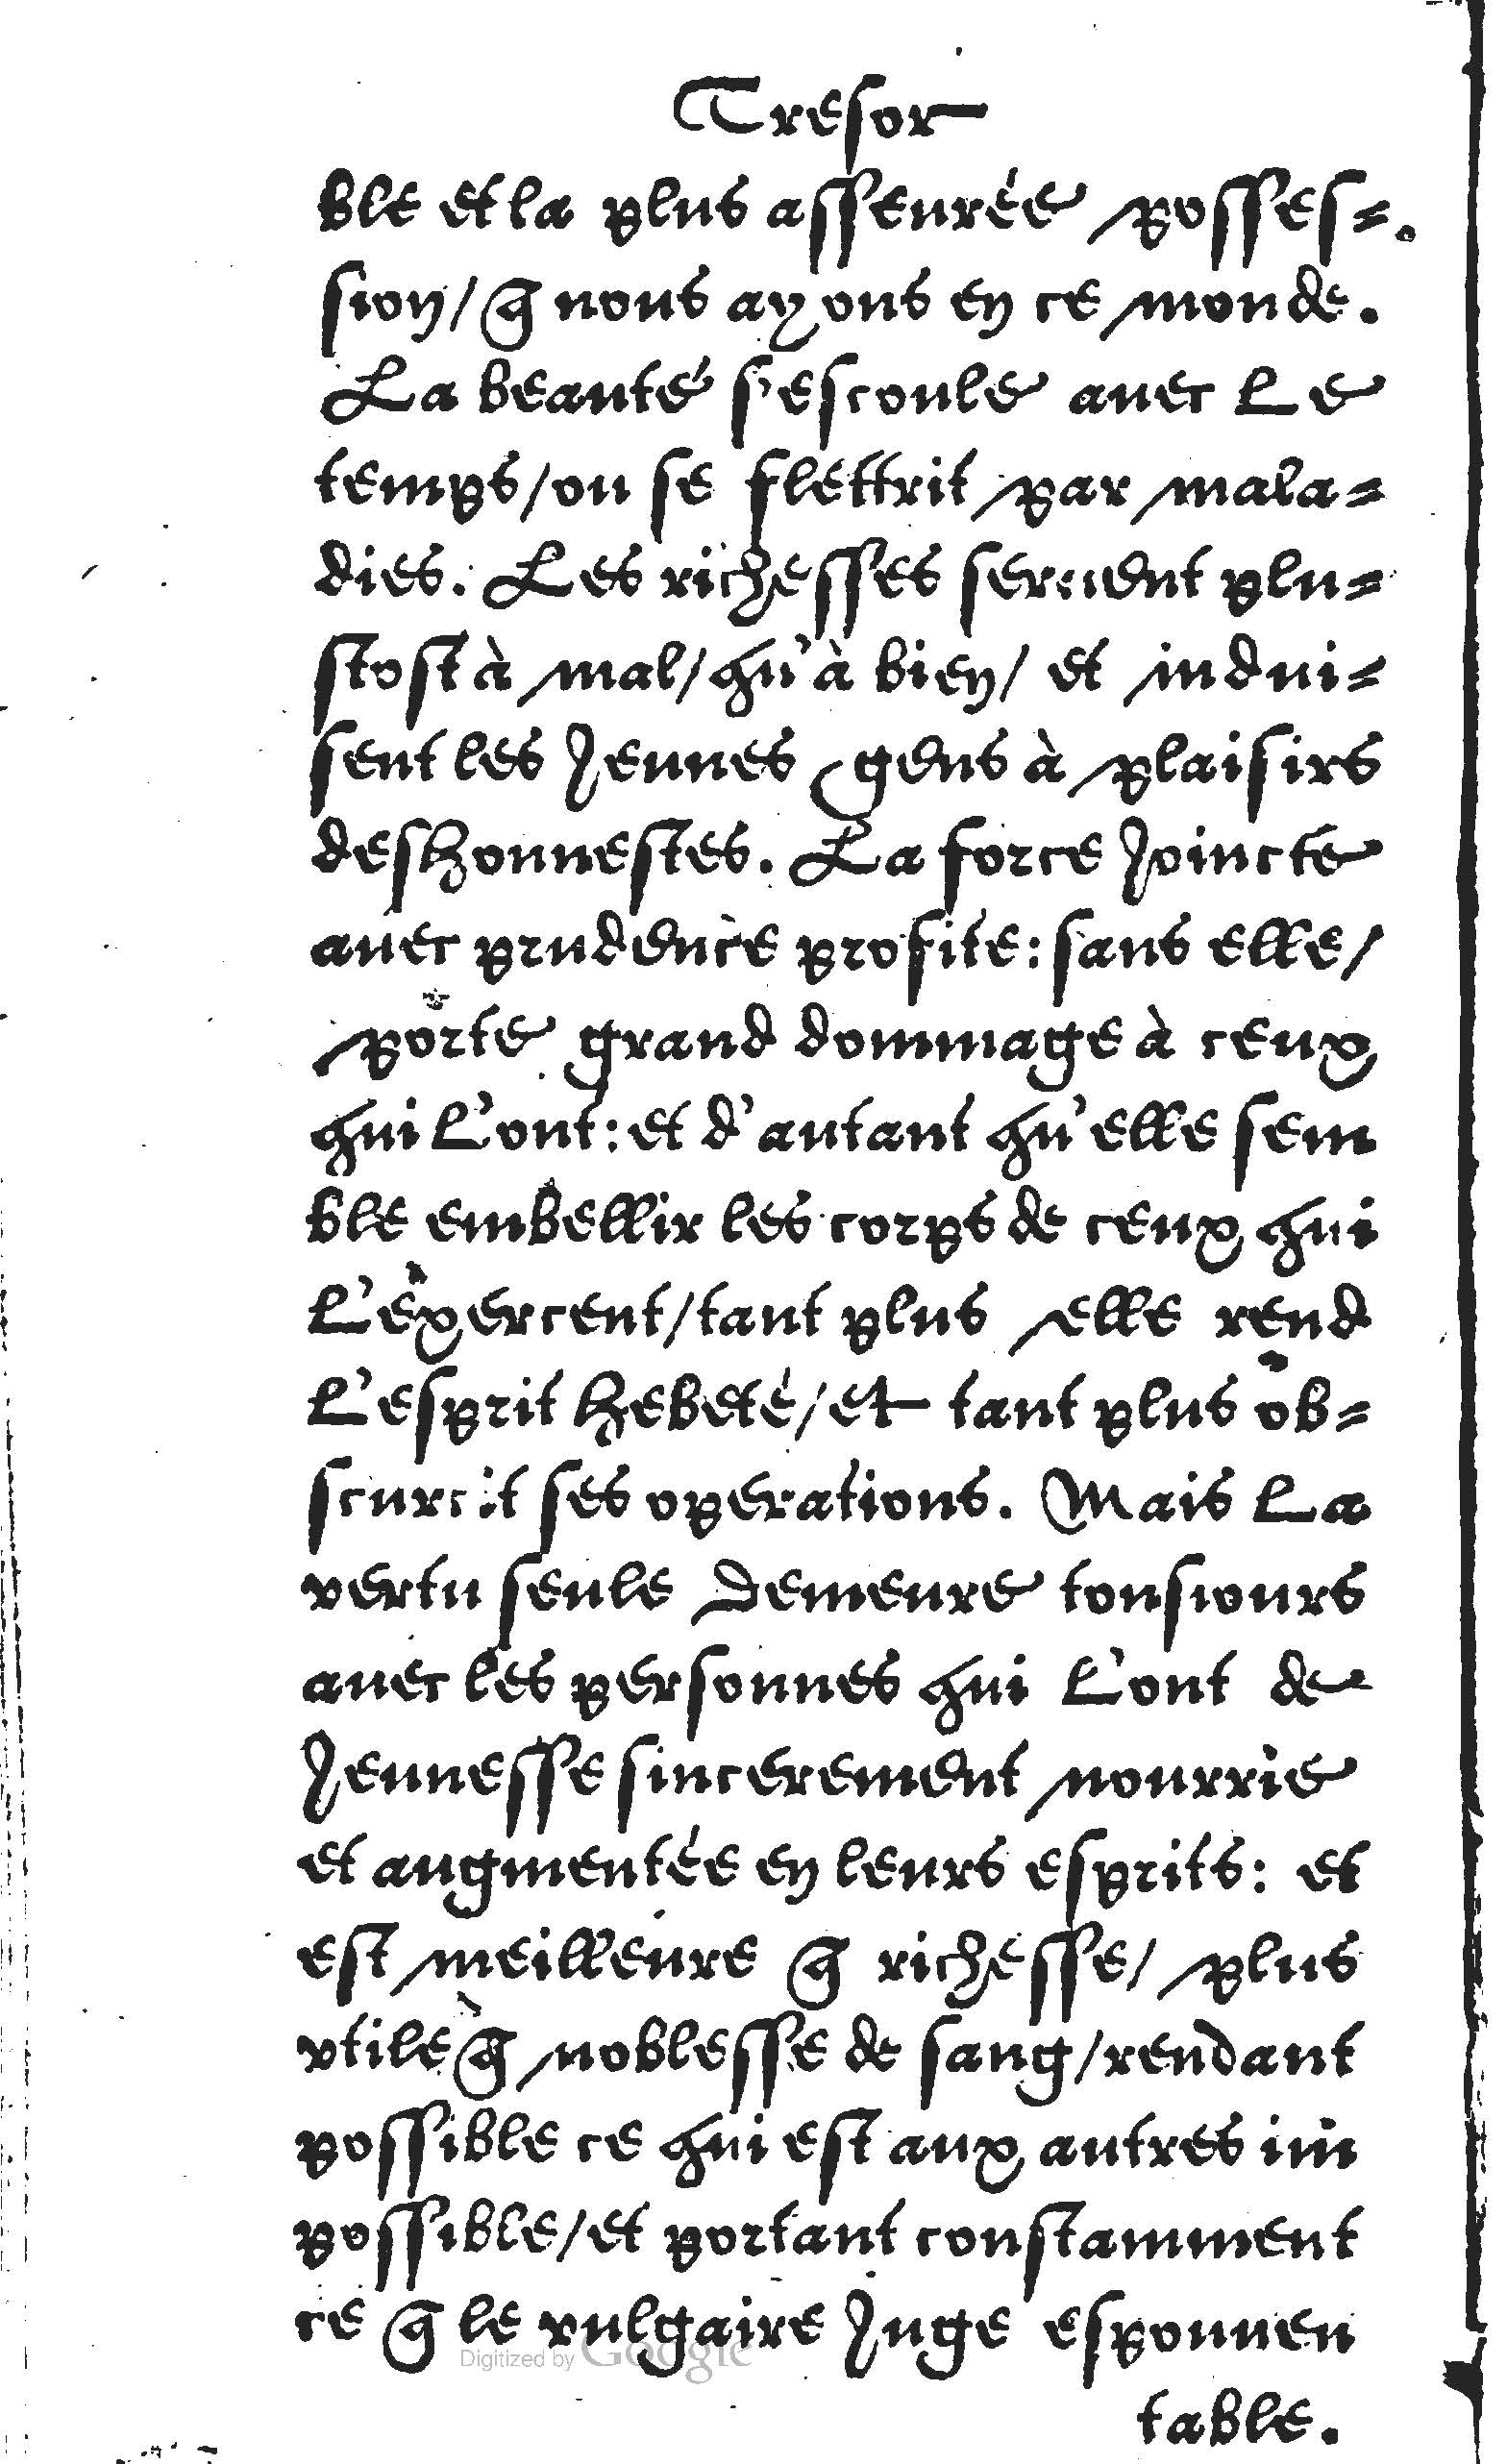 Tresor
ble et la plus asseurée posses=
sion/ q̄ nous ayons en ce monde.
La beauté s'escoule auec le
temps/ou se flettrit par mala=
dies. Les richesses seruent plu=
stost à mal/qu'à bien/ et indui=
sent les Jeunes gens à plaisirs
deshonnestes. La force Joincte
auec prudence profite: sans elle/
porte grand dommage à ceux
qui l'ont: et d'autant qu'elle sem
ble embellir les corps de ceux qui
l'exercent/tant plus elle rend
l'esprit hebeté/et tant plus ob=
scurcit ses operations. Mais la
vertu seule demeure tousiours
auec les personnes qui l'ont de
Jeunesse sincerement nourrie
et augmentée en leurs esprits: et
est meilleure q̄ richesse/ plus
vtile q̄ noblesse de sang/rendant
possible ce qui est aux autres im
possible/et portant constamment
ce q̄ le vulgaire Juge espouuen
table.
Digitized by Google